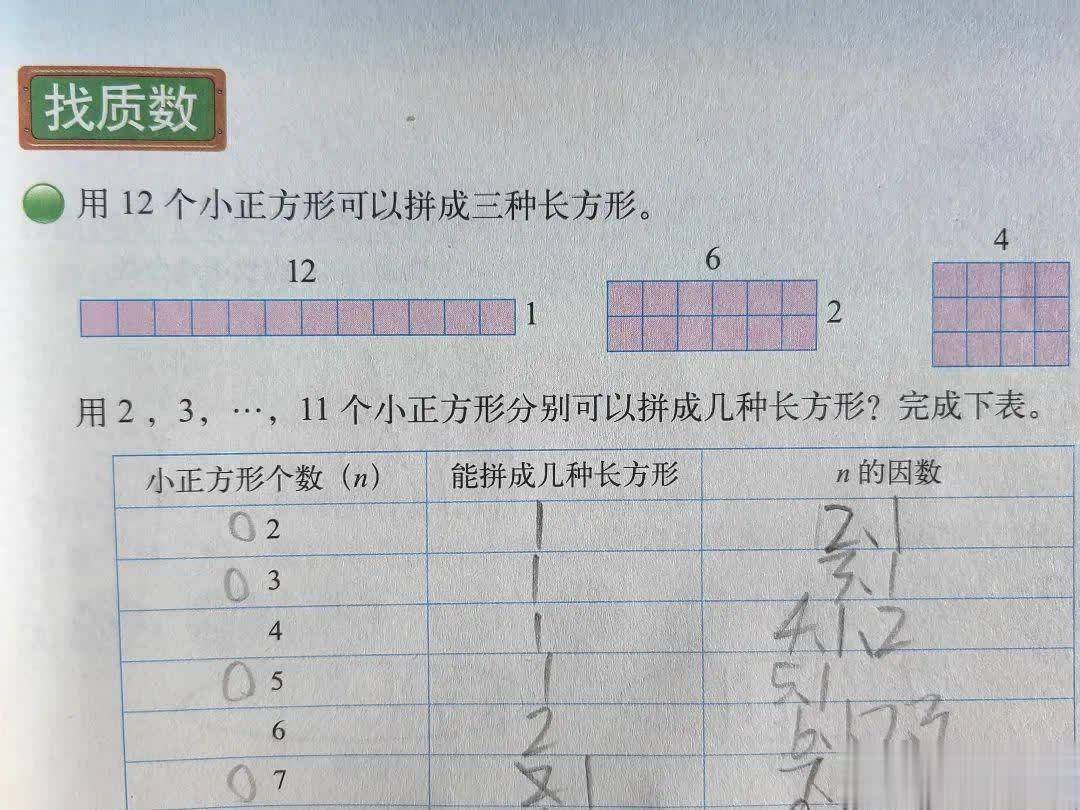 找质数
用 12 个小正方形可以拼成三种长方形。
12
1
6
2
4
用 2，3，…，11 个小正方形分别可以拼成几种长方形？完成下表。
小正方形个数（n） 能拼成几种长方形 n 的因数
0 2 1 2、1
0 3 1 3、1
4 1 4、1、2
0 5 1 5、1
6 2 6、1、2、3
0 7 1 7